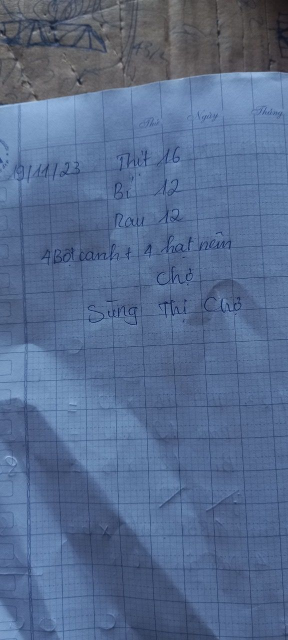 Thứ Ngày Tháng
19/11/23 Thịt 16
Bí 12
Rau 12
4 Bột canh + 4 hạt nêm
Chợ
Sùng Thị Chở